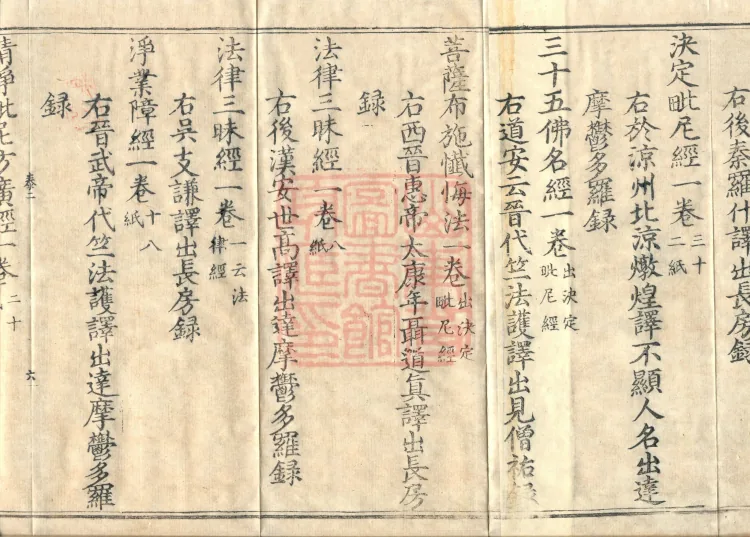 右後秦羅什譯出長房錄
決定毗尼經一卷三十二紙
右於涼州北涼燉煌譯不顯人名出達
摩鬱多羅録
三十五佛名經一卷出決定毗尼經
右道安云晉代竺法護譯出見僧祐錄
菩薩布施懺悔法一卷出決定毗尼經
右西晉惠帝太康年聶道真譯出長房
録
法律三昧經一卷八紙
右後漢安世高譯出達摩鬱多羅録
法律三昧經一卷一云法律經
右吳支謙譯出長房録
淨業障經一卷十八紙
右晉武帝代竺法護譯出達摩鬱多羅
録
卷二 六
清淨毗尼方廣經一卷二十